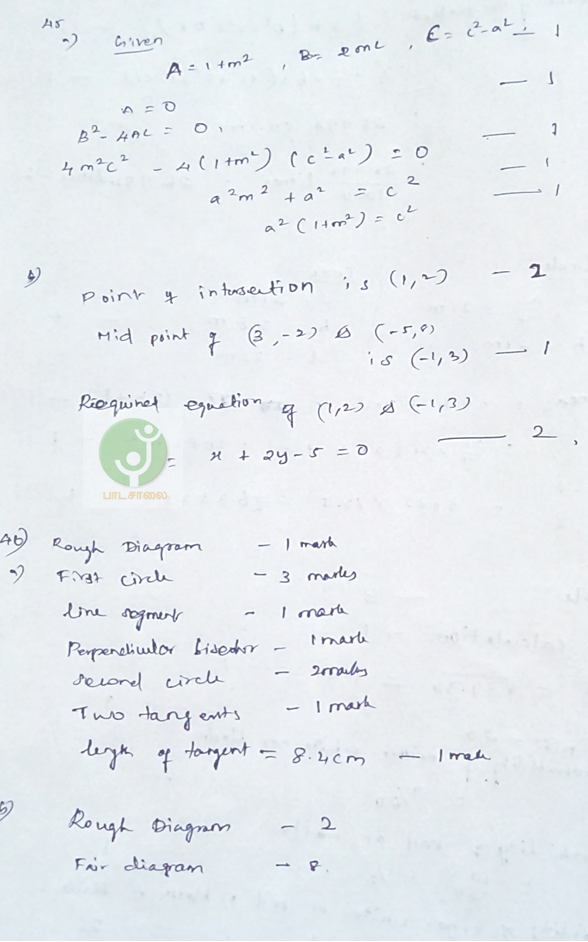 45
a) Given
A = 1+m² , B = 2mc , C = c²-a² ; 1
Δ = 0 — 1
B² - 4AC = 0, — 1
4m²c² - 4(1+m²) (c²-a²) = 0 — 1
a²m² + a² = c² — 1
a² (1+m²) = c²
b) Point of intersection is (1,2) - 2
Mid point of (3,-2) & (-5,8)
is (-1,3) — 1
Required equation of (1,2) & (-1,3)
= x + 2y - 5 = 0 — 2,
பாடசாலை
46) Rough Diagram - 1 mark
a) First circle - 3 marks
line segment - 1 mark
Perpendicular bisector - 1 mark
Second circle - 2 marks
Two tangents - 1 mark
length of tangent = 8.4cm - 1 mark
b) Rough Diagram - 2
Fair diagram - 8.